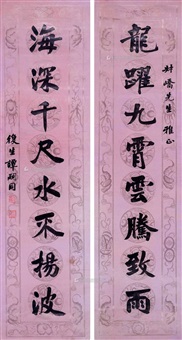 龍躍九霄雲騰致雨
封嶠先生雅正
海深千尺水不揚波
復生譚嗣同